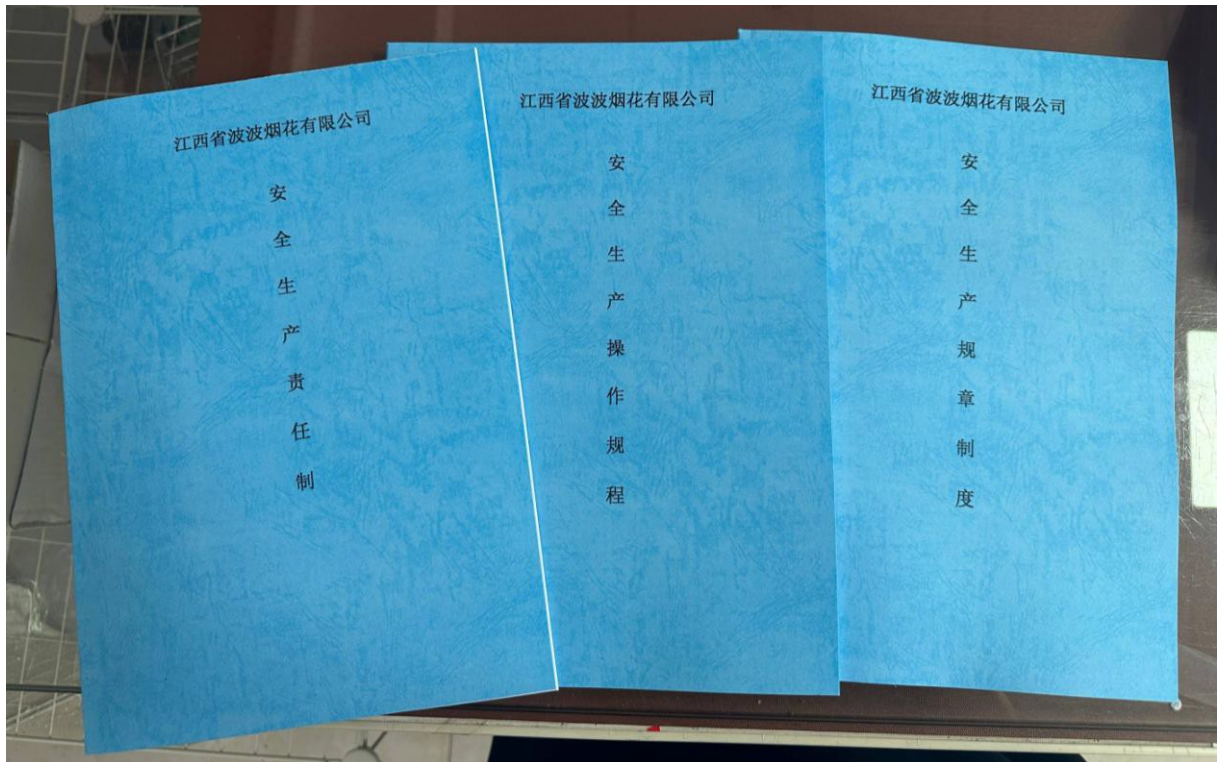 江西省波波烟花有限公司
安全生产责任制
江西省波波烟花有限公司
安全生产操作规程
江西省波波烟花有限公司
安全生产规章制度